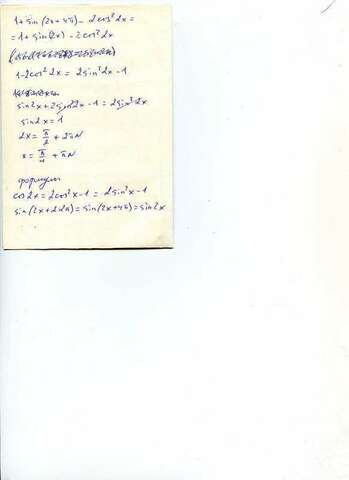 1+sin(2x+4π)-2cos²2x=
=1+sin(2x)-2cos²2x
1-2cos²2x=2sin²2x-1
sin2x+2sin²2x-1=2sin²2x
sin2x=1
2x=π/2+2πN
x=π/4+πN
формулы
cos2x=2cos²x-1=2sin²x-1
sin(2x+2·2π)=sin(2x+4π)=sin2x